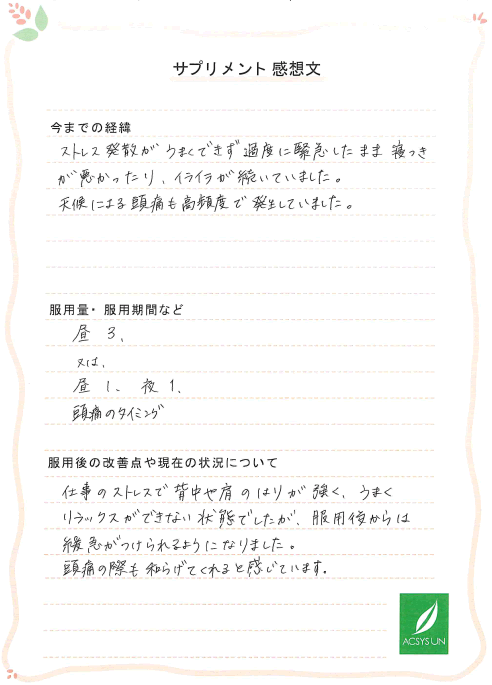 サプリメント 感想文
今までの経緯
ストレス発散が うまくできず 過度に緊急したまま 寝つき
が悪かったり、イライラが続いていました。
天候による頭痛も高頻度で発生していました。
服用量・服用期間など
昼 3、
又は、
昼 1、 夜 1、
頭痛のタイミング
服用後の改善点や現在の状況について
仕事のストレスで背中や肩のはりが強く、うまく
リラックスができない状態でしたが、服用後からは
緩急がつけられるようになりました。
頭痛の際も和らげてくれると感じています。
ACSYSUN